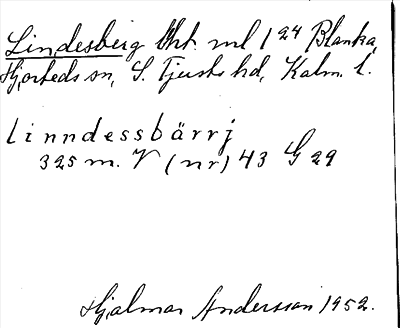 Lindesberg tht. ml 1 24 Blanka,
Hjorteds sn, S. Tjusts hd, Kalm. l.
Linndessbärrj
325 m. V (nr) 43 G 29
Hjalmar Andersson 1952.